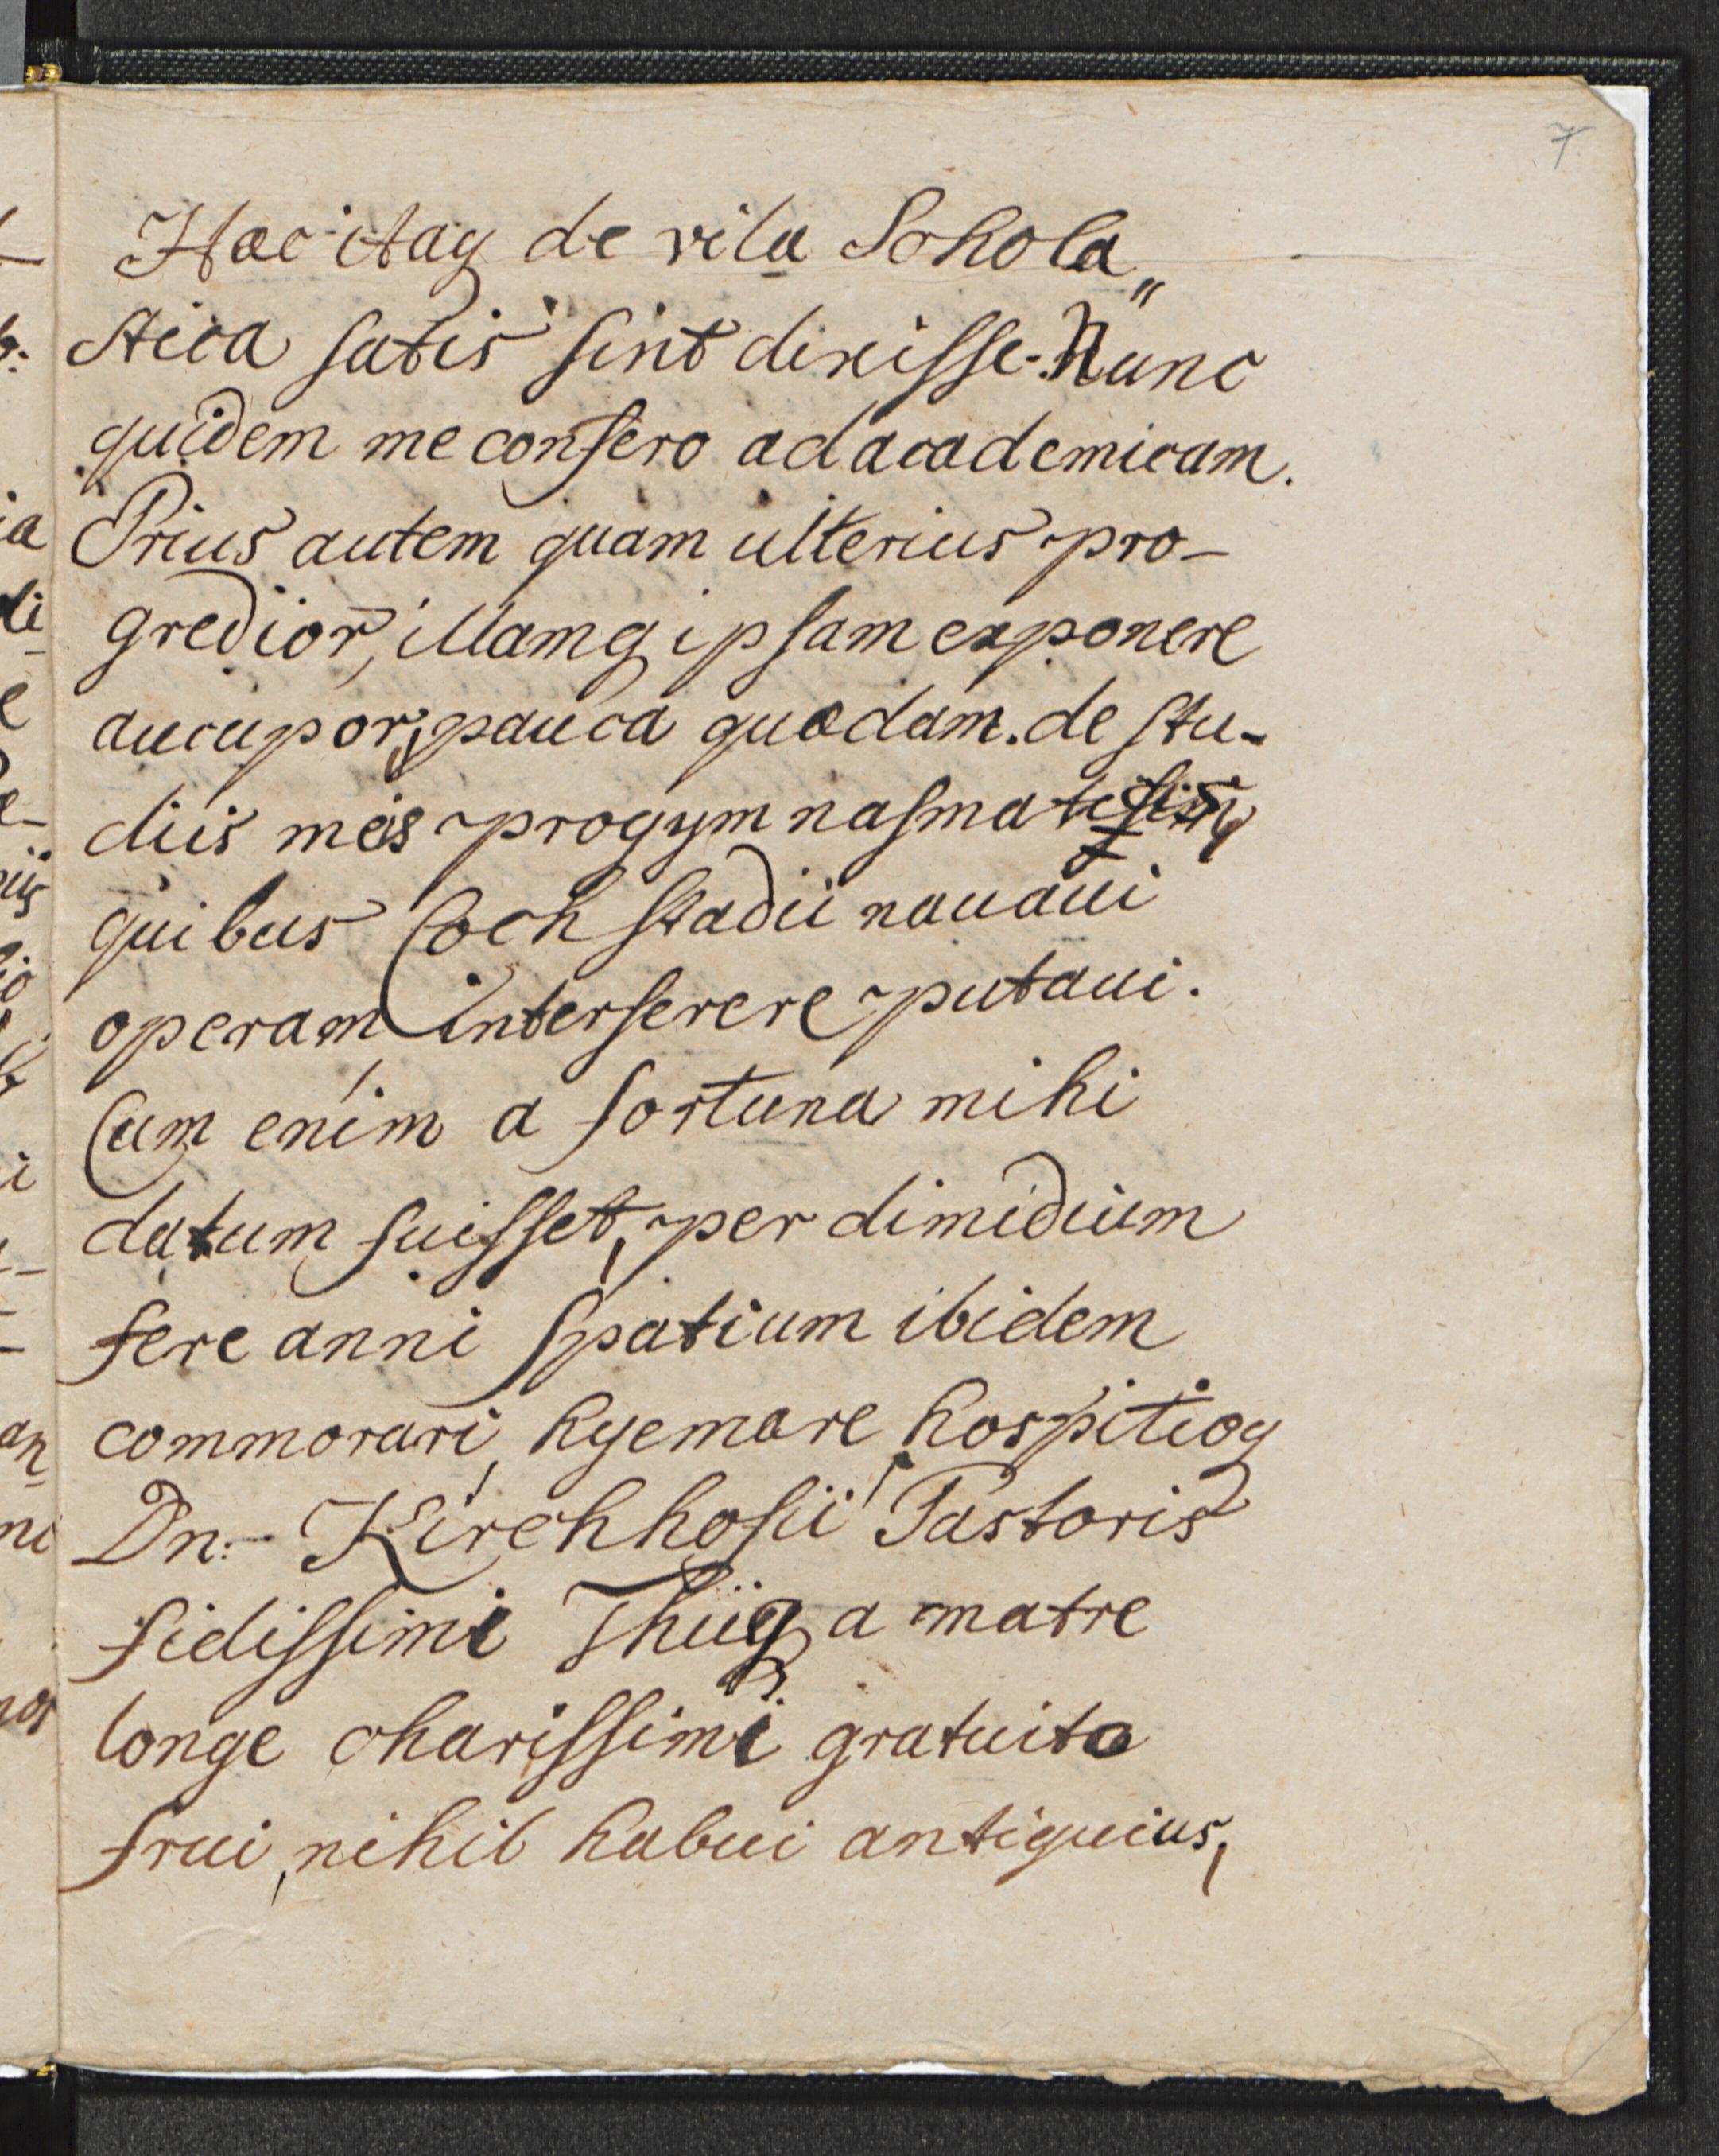 7
Haec itaq de vita Schola„
stica satis sint dixisse. Nunc
quidem me confero ad academicam.
Prius autem quam ulterius pro-
gredior, illamq ipsam exponere
aucupor, pauca quaedam. de stu-
diis meis progymnasmat
quibus Cochstadii nauaui
operam interserere putaui.
Cum enim a fortuna mihi
datum fuisset, per dimidium
fere anni spatium ibidem
commorari, hyemare, hospitioq
Dn. Kirchhofii Pastoris
fidissimi Thiiq a matre
longe charissimi gratuito
frui, nihil habui antiquius,